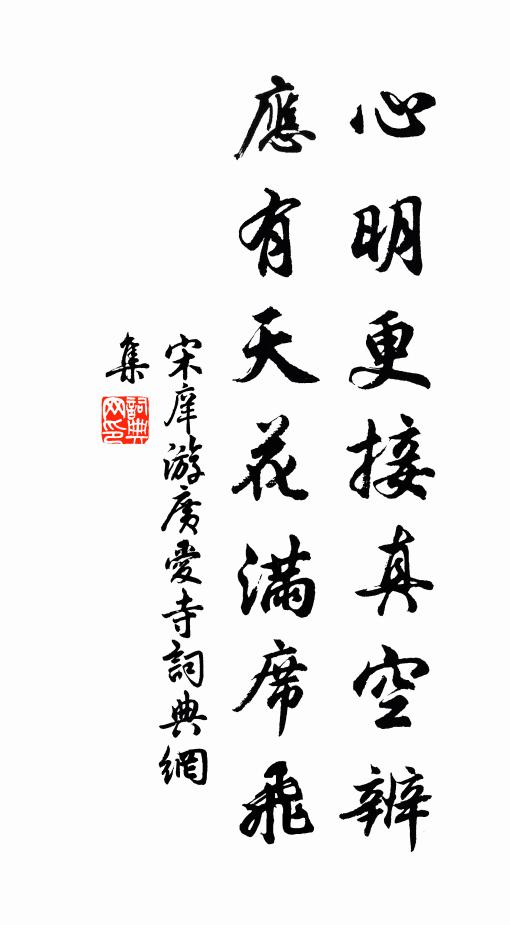 心明更接真空辨
應有天花滿席飛
宋庠游廣愛寺詞典網
集
詞典
网印